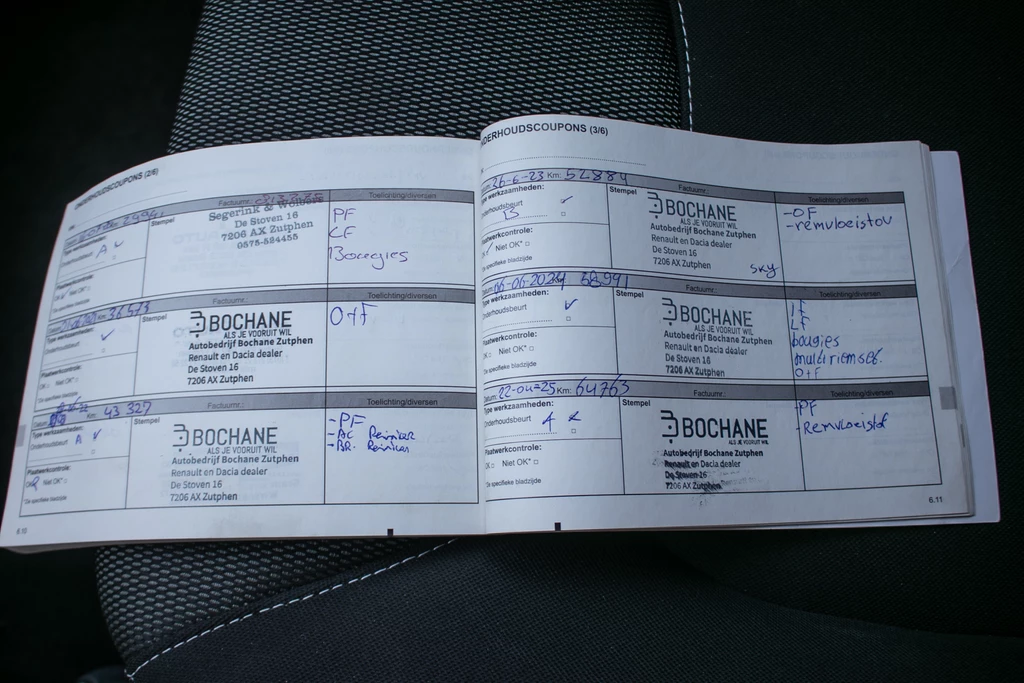 ONDERHOUDSCOUPONS (2/6)
Factuurnr.:
Toelichting/diversen
Type werkzaamheden:
Stempel
Onderhoudsbeurt A ✓
Segerink &
De Stoven 16
7206 AX Zutphen
0575-524455
PF
LF
Bougies
Plaatwerkcontrole:
OK Niet OK*
*Zie specifieke bladzijde
36573
Factuurnr.:
Toelichting/diversen
Type werkzaamheden:
Stempel
Onderhoudsbeurt ✓
BOCHANE
ALS JE VOORUIT WIL
Autobedrijf Bochane Zutphen
Renault en Dacia dealer
De Stoven 16
7206 AX Zutphen
O+F
Plaatwerkcontrole:
OK Niet OK*
*Zie specifieke bladzijde
Datum: Km: 43 327
Factuurnr.:
Toelichting/diversen
Type werkzaamheden:
Stempel
Onderhoudsbeurt A ✓
BOCHANE
ALS JE VOORUIT WIL
Autobedrijf Bochane Zutphen
Renault en Dacia dealer
De Stoven 16
7206 AX Zutphen
-PF
-AC Reiniger
-BR. Reiniger
Plaatwerkcontrole:
OK Niet OK*
*Zie specifieke bladzijde
6.10
ONDERHOUDSCOUPONS (3/6)
Datum: 26-6-23 Km: 52884
Factuurnr.:
Toelichting/diversen
Type werkzaamheden:
Stempel
Onderhoudsbeurt B ✓
BOCHANE
ALS JE VOORUIT WIL
Autobedrijf Bochane Zutphen
Renault en Dacia dealer
De Stoven 16
7206 AX Zutphen
sky
-OF
-remvloeistov
Plaatwerkcontrole:
OK Niet OK*
*Zie specifieke bladzijde
Datum: 06-06-2024 58991
Factuurnr.:
Toelichting/diversen
Type werkzaamheden:
Stempel
Onderhoudsbeurt ✓
BOCHANE
ALS JE VOORUIT WIL
Autobedrijf Bochane Zutphen
Renault en Dacia dealer
De Stoven 16
7206 AX Zutphen
IF
LF
bougies
multiriemset.
O+F
Plaatwerkcontrole:
OK Niet OK*
*Zie specifieke bladzijde
Datum: 22-04-25 Km: 64763
Factuurnr.:
Toelichting/diversen
Type werkzaamheden:
Stempel
Onderhoudsbeurt A
BOCHANE
ALS JE VOORUIT WIL
Autobedrijf Bochane Zutphen
Renault en Dacia dealer
De Stoven 16
7206 AX Zutphen
-PF
-Remvloeistof
Plaatwerkcontrole:
OK Niet OK*
*Zie specifieke bladzijde
6.11